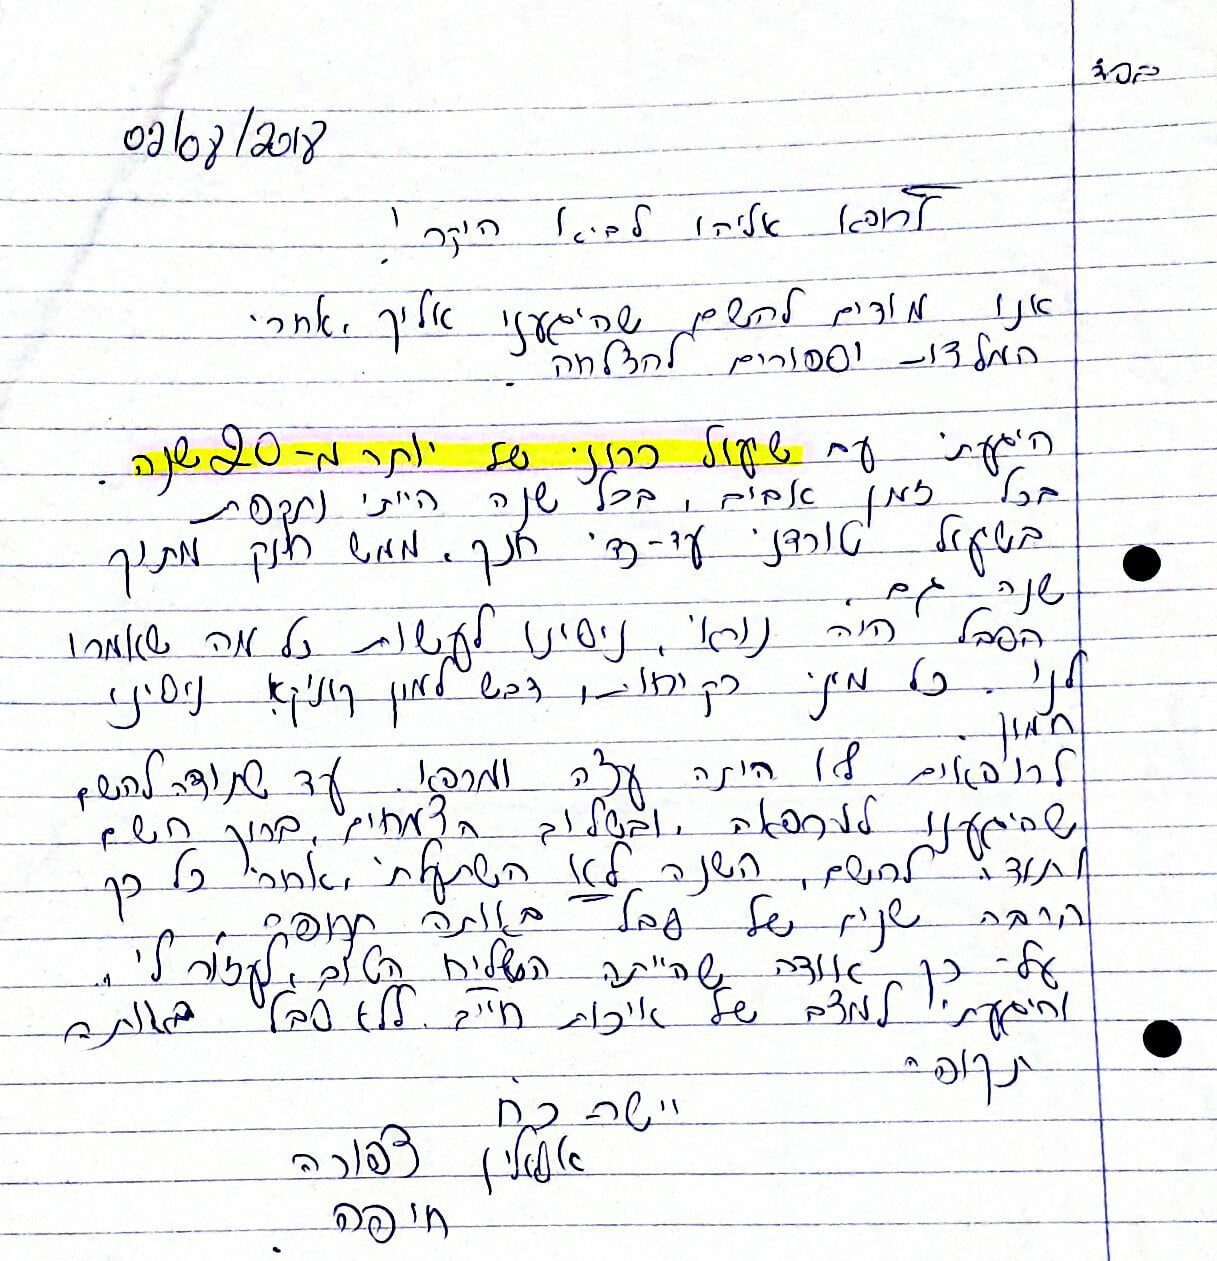 בס"ד
02/08/2018
לרופא אליהו לביא היקר!
אנו מודים להשם שהיגענו אליך, אחרי
המלצות וספורים להצלחה.
היגעתי עם שיעול כרוני של יותר מ-20 שנה.
בכל זמן אביב, בכל שנה הייתי נתקפת
בשיעול טורדני עד-כדי חנק. ממש חנק מתוך
שנה גם.
הסבל היה נוראי, ניסינו לעשות כל מה שאמרו
לנו. כל מיני רקיחות, דבש לימון ניסינו
המון.
לרופאים לא היתה עצה ומרפא. עד שתודה להשם
שהיגענו למרפאה, ובשילוב הצמחים, ברוך השם
ותודה להשם, השנה לא השתעלתי, אחרי כל כך
הרבה שנים של סבל באותה תקופה
על-כן אודה שהייתה השליח הטוב, לעזור לי,
והיגעתי למצב של איכות חיים ללא סבל באותה
תקופה
יישר כח
צפורה
חיפה.